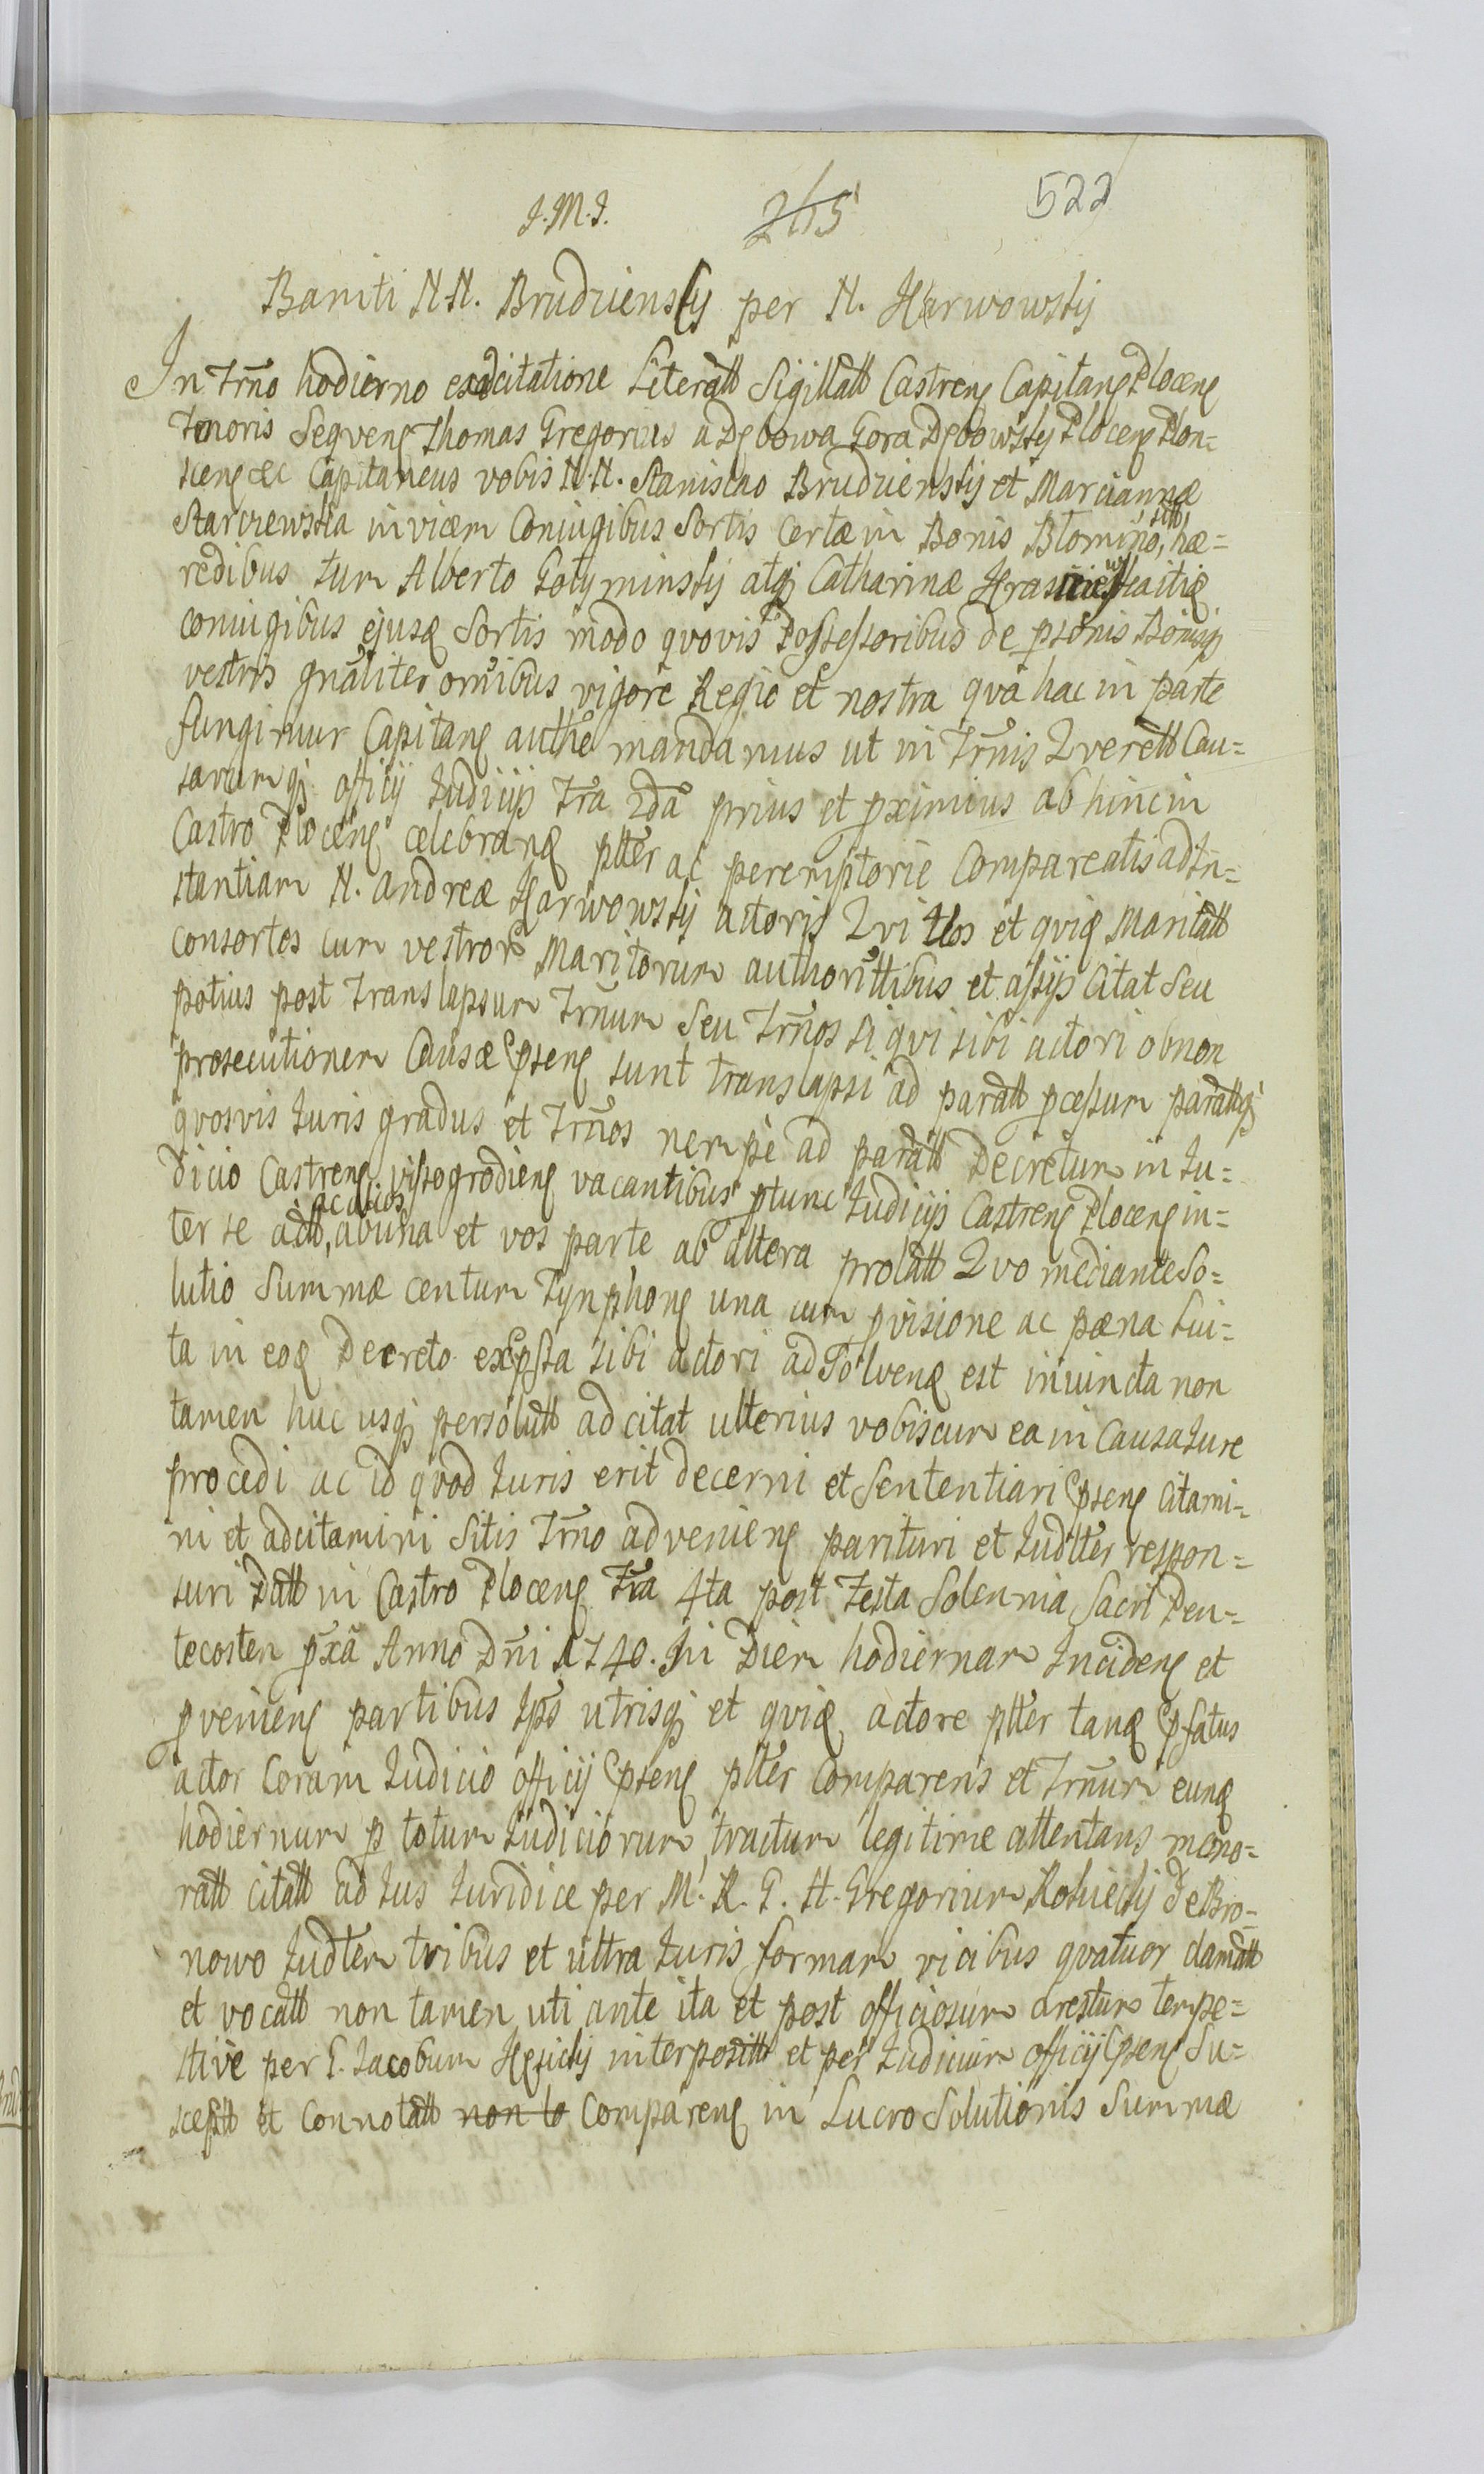 J. M. J. 215 522
Baniti N. N. Brudzienscy per N. Karwowsky
In Trno hodierno ex adcitatione Literatt Sigillatt Castrens Capitans Plocens
Tenoris Seqvens Thomas Gregorius a Dębowa Gora Dębowsky Plocens Plon=
scens &c Capitaneus vobis N. N. Stanislao Brudziensky et Mariannæ
Starczewska invicem Coniugibus Sortis Certæ in Bonis Blomino, sitt hæ=
redibus tum Alberto Gotyminsky atq Catharinæ
coniugibus ejusq Sortis modo qvovis Possessoribus de psonis Bonisq
vestris gnaliter omibus vigore Regie et nostra qva hac in parte
fungimur Capitans authe mandamus ut in Trnis Qverell Cau=
sarumq officij Judicijs fria 2da prius et pximius ab hinc in
Castro Plocens celebrand plter ac peremptorie Compareatis ad In=
stantiam N. Andreæ Karwowsky actoris Qvi Vos et qvid Maritatt
consortes cum vestror Maritorum authorittibus et assijs Citat Seu
potius post translapsum Trnum Seu Trnos si qvi sibi actori ob non
prosecutionem Causæ psens sunt translapsi ad paratt pcessum parattq
qvosvis Juris gradus et Trnos nempe ad paratt Decretum in Ju=
dicio Castrens Vissogrodiens vacantibus ptunc Judicijs Castrens Plocens in=
ter se actt, ac alios ab una et vos parte ab altera prolatt Qvo mediante So=
lutio Summæ centum Tynphons una cum pvisione ac pæna Lui=
ta in eod Decreto expssa sibi actori ad Solvend est iniuncta non
tamen huc usq persolutt ad citat ulterius vobiscum ea in Causa Jure
procedi ac id qvod Juris erit decerni et Sententiari psens Citami=
ni et adcitamini Sitis Trno adveniens parituri et Judlter respon=
suri Datt in Castro Plocens fria 4ta post festa Solennia Sacri Pen=
tecosten pxa Anno Dni 1740. In Diem hodiernam Incidens et
pveniens partibus Ips utrisq et qvid actore plter tanq pfatus
actor Coram Judicio officij psens plter Comparens et Trnum eund
hodiernum p totum Judiciorum tractum legitime attentans memo=
ratt citatt ad Jus Juridice per M. R. G. N. Gregorium de Bro=
nowo Judlter tribus et ultra Juris formam vicibus qvatuor clamatt
et vocatt non tamen uti ante ita et post officiosum arestum tempe=
stive per G. Jacobum interpositt et per Judicium officij psens Su=
sceptt et Connotatt non lo Comparens in Lucro Solutionis Summæ